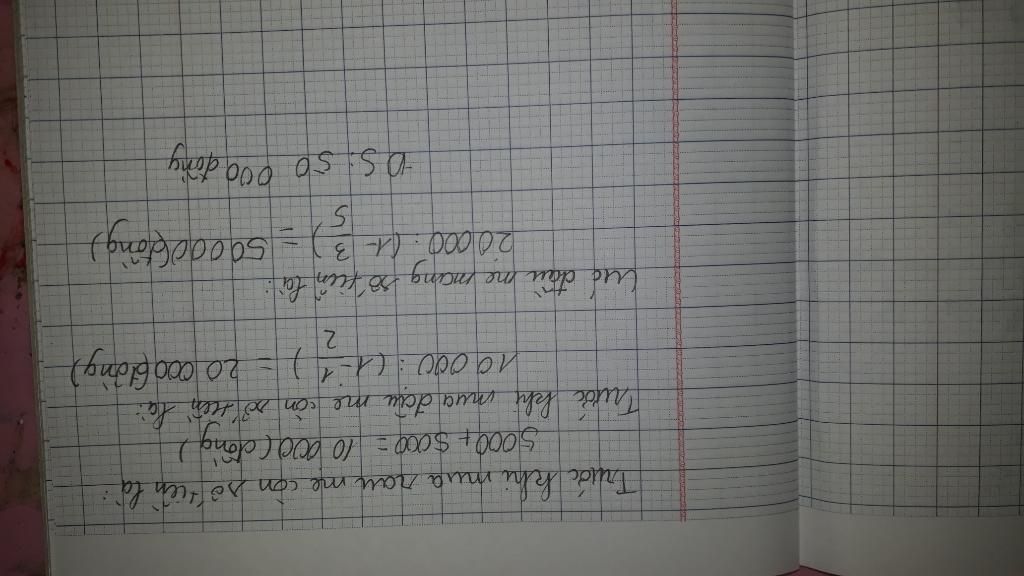 Trước khi mua rau mẹ còn số tiền là:
5000 + 5000 = 10 000 (đồng)
Trước khi mua đậu mẹ còn số tiền là:
10 000 : (1 - 1/2) = 20 000 (đồng)
Lúc đầu mẹ mang số tiền là:
20 000 : (1 - 3/5) = 50 000 (đồng)
Đ S: 50 000 đồng